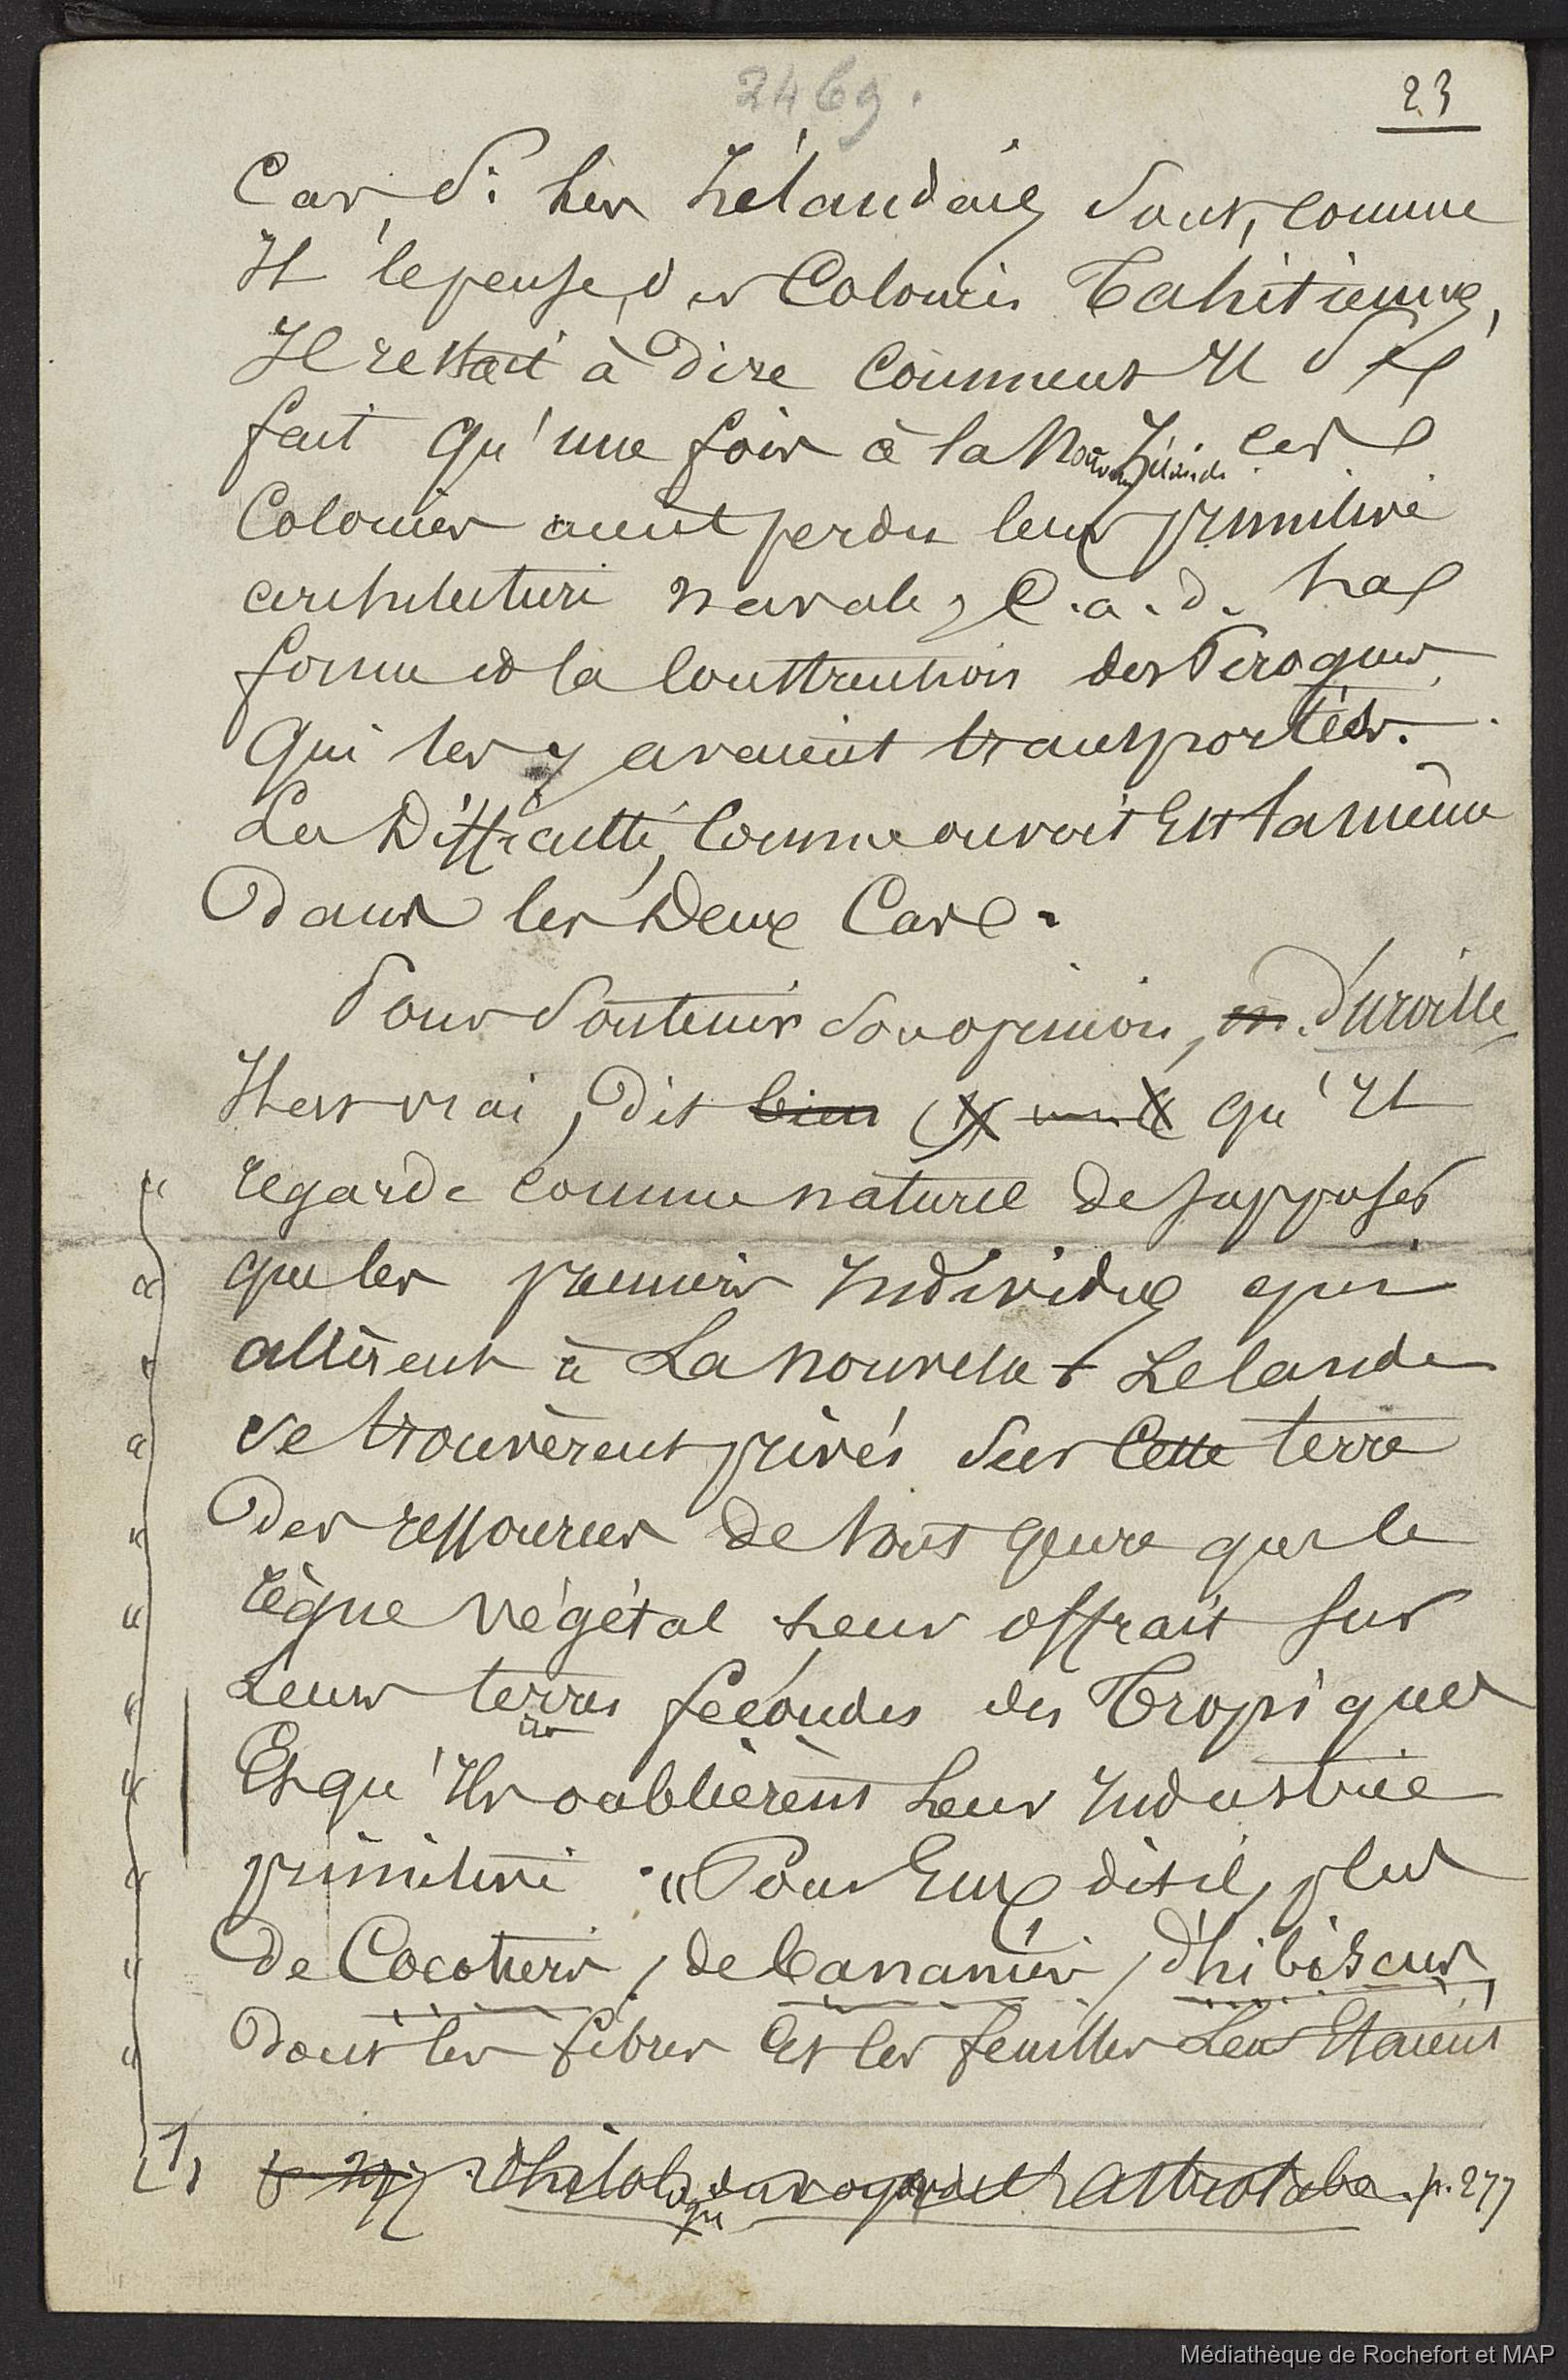 2469.
23
Car, si les Zélandais sont, comme
Il le pense, des Colonies Tahitiennes,
Il restait à dire comment Il se
fait qu'une fois à la Nouv. Zélande ces
Colonies aient perdu leur primitive
architecture navale, C.a.d. la
forme et la Construction des Pirogues
qui les y avaient transportés.
La Difficulté, Comme on voit Est la même
Dans les Deux Cas.
Pour Soutenir Son opinion, m. d'Urville,
Il est vrai, Dit bien qu'Il
regarde comme naturel de supposer
" que les premiers Individus qui
" allèrent à La Nouvelle Zelande
" se trouvèrent privés Sur Cette terre
" Des ressources de tout genre que le
" règne végétal Leur offrait sur
" Leurs terres fécondes des Tropiques
" Et qu'Ils oublièrent Leur Industrie
" primitive. " Pour Eux, dit il, plus
" De Cocotiers, de bananiers, d'hibiscus,
" Dont les fibres Et les feuilles Leur Etaient
(1) Philologie du voyage de l'Astrolabe. p. 277
Médiathèque de Rochefort et MAP